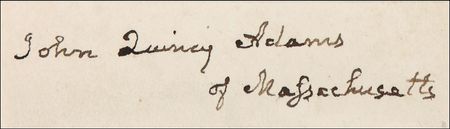 John Quincy Adams
of Maſsachusetts